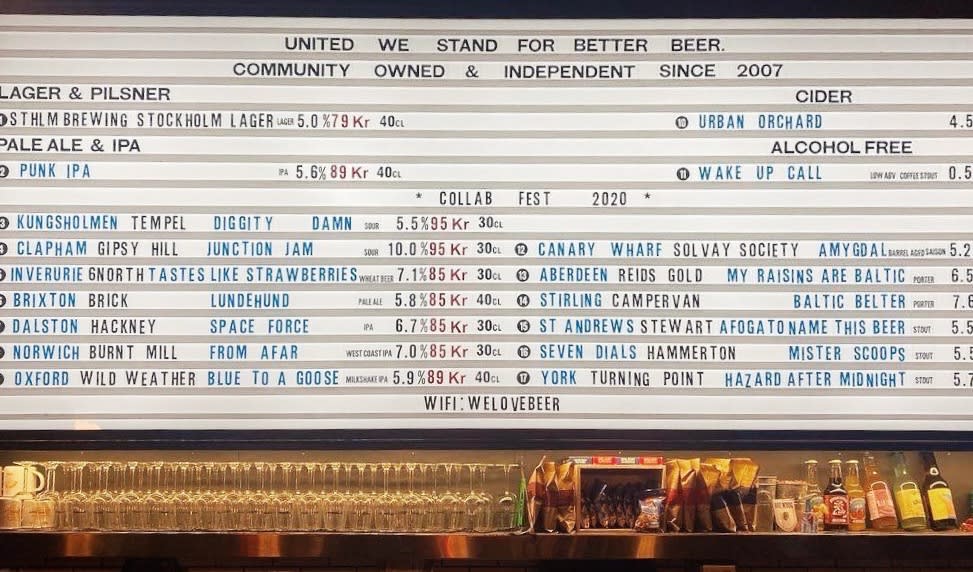 UNITED WE STAND FOR BETTER BEER.
COMMUNITY OWNED & INDEPENDENT SINCE 2007
LAGER & PILSNER
STHLM BREWING STOCKHOLM LAGER LAGER 5.0% 79 Kr 40CL
PALE ALE & IPA
2 PUNK IPA IPA 5.6% 89 Kr 40CL
CIDER
10 URBAN ORCHARD 4.5
ALCOHOL FREE
11 WAKE UP CALL LOW ABV COFFEE STOUT 0.5
* COLLAB FEST 2020 *
3 KUNGSHOLMEN TEMPEL DIGGITY DAMN SOUR 5.5% 95 Kr 30CL
4 CLAPHAM GIPSY HILL JUNCTION JAM SOUR 10.0% 95 Kr 30CL
INVERURIE 6NORTH TASTES LIKE STRAWBERRIES WHEAT BEER 7.1% 85 Kr 30CL
BRIXTON BRICK LUNDEHUND PALE ALE 5.8% 85 Kr 40CL
DALSTON HACKNEY SPACE FORCE IPA 6.7% 85 Kr 30CL
NORWICH BURNT MILL FROM AFAR WEST COAST IPA 7.0% 85 Kr 30CL
OXFORD WILD WEATHER BLUE TO A GOOSE MILKSHAKE IPA 5.9% 89 Kr 40CL
12 CANARY WHARF SOLVAY SOCIETY AMYGDAL BARREL AGED SAISON 5.2
13 ABERDEEN REIDS GOLD MY RAISINS ARE BALTIC PORTER 6.5
14 STIRLING CAMPERVAN BALTIC BELTER PORTER 7.6
15 ST ANDREWS STEWART AFOGATO NAME THIS BEER STOUT 5.5
16 SEVEN DIALS HAMMERTON MISTER SCOOPS STOUT 5.5
17 YORK TURNING POINT HAZARD AFTER MIDNIGHT STOUT 5.7
WIFI:WELOVEBEER